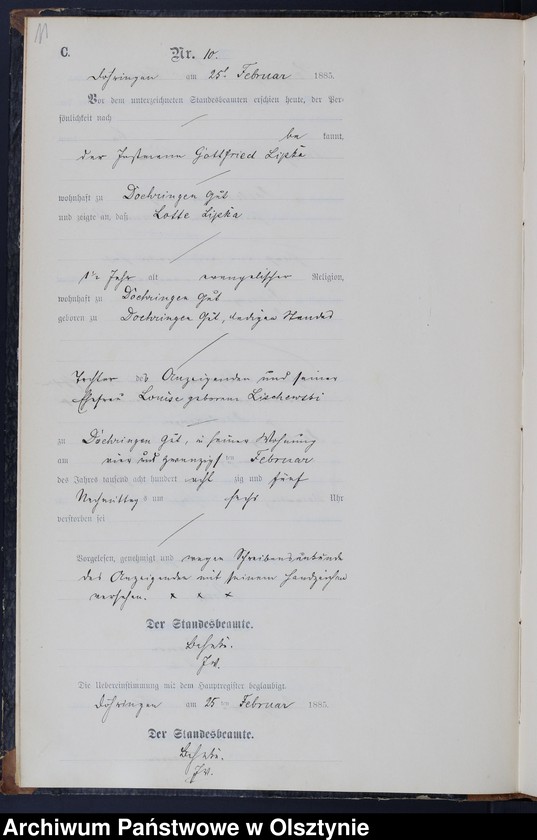 11
C.
Nr. 10.
Döhringen am 25t Februar 1885.
Vor dem unterzeichneten Standesbeamten erschien heute, der Per-
sönlichkeit nach
be kannt,
der Instmann Gottfried Lipka
wohnhaft zu Doehringen Gut
und zeigte an, daß Lotte Lipka
Jahr alt evangelischer Religion,
wohnhaft zu Döehringen Gut
geboren zu Doehringen Gut, ledigen Standes
Tochter des Anzeigenden und seiner
Ehefrau Louise geborene Lischewski
zu Döehringen Gut, in seiner Wohnung
am vier und zwanzigsten Februar
des Jahres tausend acht hundert acht zig und fünf
Nachmittags um sechs Uhr
verstorben sei
Vorgelesen, genehmigt und wegen Schreibensunkunde
des Anzeigenden mit seinem Handzeichen
versehen. x x x
Der Standesbeamte.
Die Uebereinstimmung mit dem Hauptregister beglaubigt.
Döhringen am 25 ten Februar 1885.
Der Standesbeamte.
Archiwum Państwowe w Olsztynie